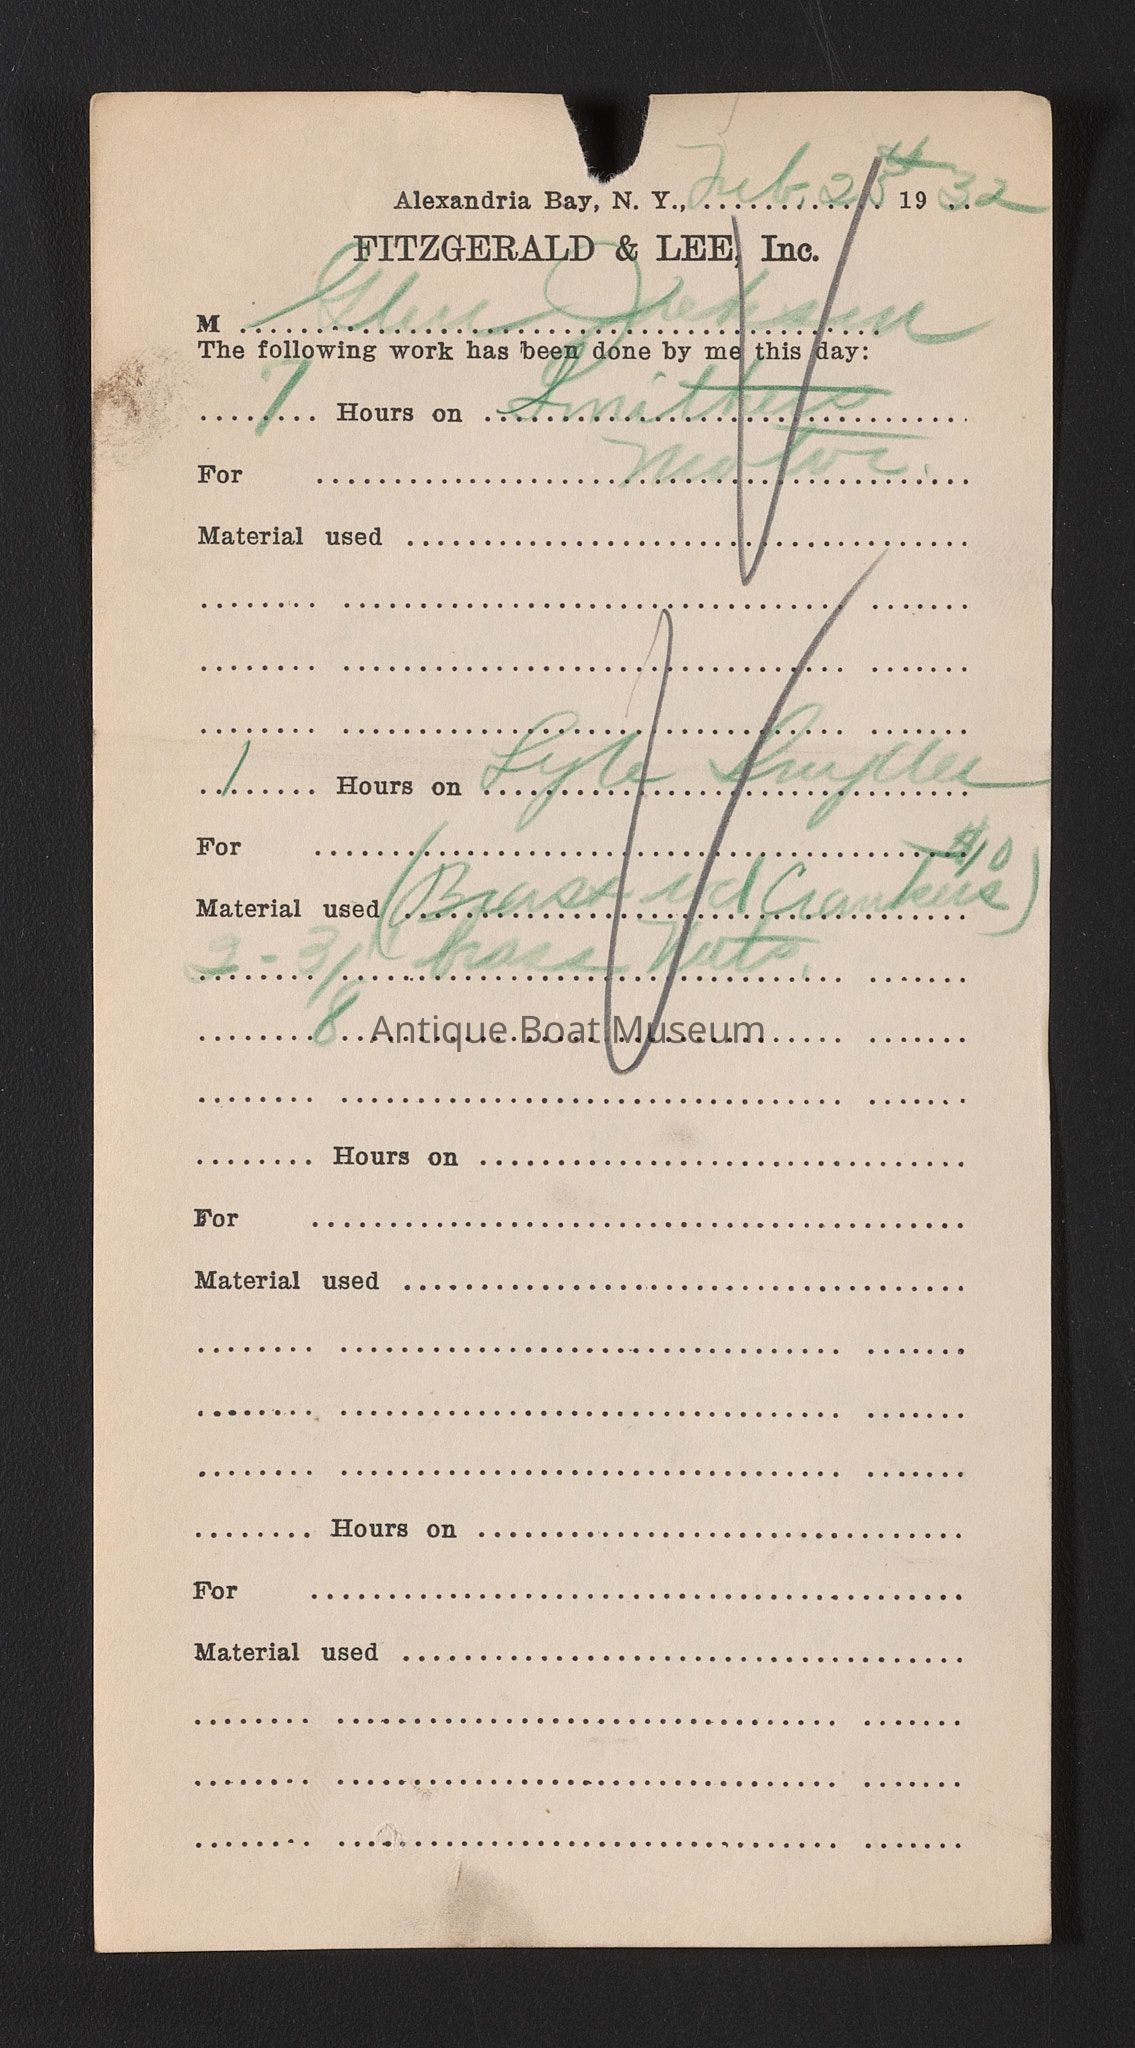 Alexandria Bay, N. Y., Feb. 25th 1932
FITZGERALD & LEE, Inc.
M Glenn
The following work has been done by me this day:
7 Hours on Smithers
For Motor.
Material used
1 Hours on Lyle Snyder
For $10
Material used (Brass rod Crankers)
2 - 3/8 brass Nuts.
Antique Boat Museum
Hours on
For
Material used
Hours on
For
Material used